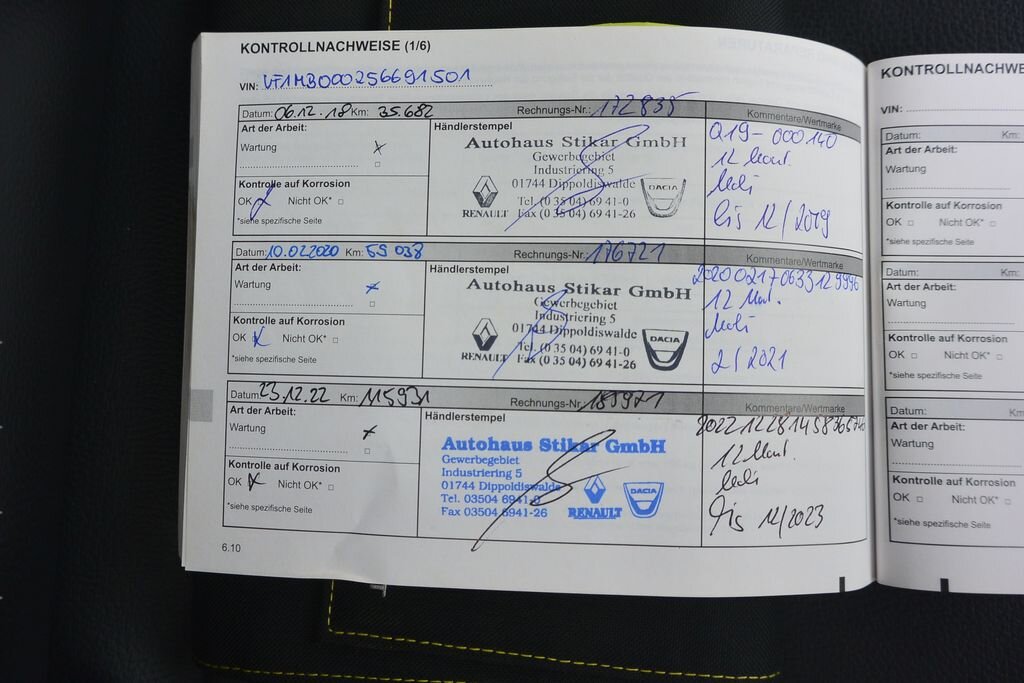 KONTROLLNACHWEISE (1/6)
VIN: VF1MB000256691501
Datum: 06.12.18 Km: 35.682 Rechnungs-Nr.: 172835 Kommentare/Wertmarke
Art der Arbeit: Händlerstempel
Wartung
Autohaus Stikar GmbH
Gewerbegebiet
Industriering 5
01744 Dippoldiswalde
Tel. (0 35 04) 69 41-0
Fax (0 35 04) 69 41-26
RENAULT DACIA
Q19-000140
12 Mont.
Mobi
bis 12/2019
Kontrolle auf Korrosion
OK Nicht OK* □
*siehe spezifische Seite
Datum: 10.02.2020 Km: 59 038 Rechnungs-Nr.: 176721 Kommentare/Wertmarke
Art der Arbeit: Händlerstempel
Wartung
Autohaus Stikar GmbH
Gewerbegebiet
Industriering 5
01744 Dippoldiswalde
Tel. (0 35 04) 69 41-0
Fax (0 35 04) 69 41-26
RENAULT DACIA
202002170633129996
12 Mont.
Mobi
2/2021
Kontrolle auf Korrosion
OK Nicht OK* □
*siehe spezifische Seite
Datum: 23.12.22 Km: 115931 Rechnungs-Nr. Kommentare/Wertmarke
Art der Arbeit: Händlerstempel
Wartung
Autohaus Stikar GmbH
Gewerbegebiet
Industriering 5
01744 Dippoldiswalde
Tel. 03504 6941-0
Fax 03504 6941-26
RENAULT DACIA
12 Mont.
Mobi
Bis 12/2023
Kontrolle auf Korrosion
OK Nicht OK* □
*siehe spezifische Seite
6.10
KONTROLLNACHWE
VIN:
Datum: Km:
Art der Arbeit:
Wartung
Kontrolle auf Korrosion
OK □ Nicht OK* □
*siehe spezifische Seite
Datum: Km:
Art der Arbeit:
Wartung
Kontrolle auf Korrosion
OK □ Nicht OK* □
*siehe spezifische Seite
Datum: Km:
Art der Arbeit:
Wartung
Kontrolle auf Korrosion
OK □ Nicht OK* □
*siehe spezifische Seite